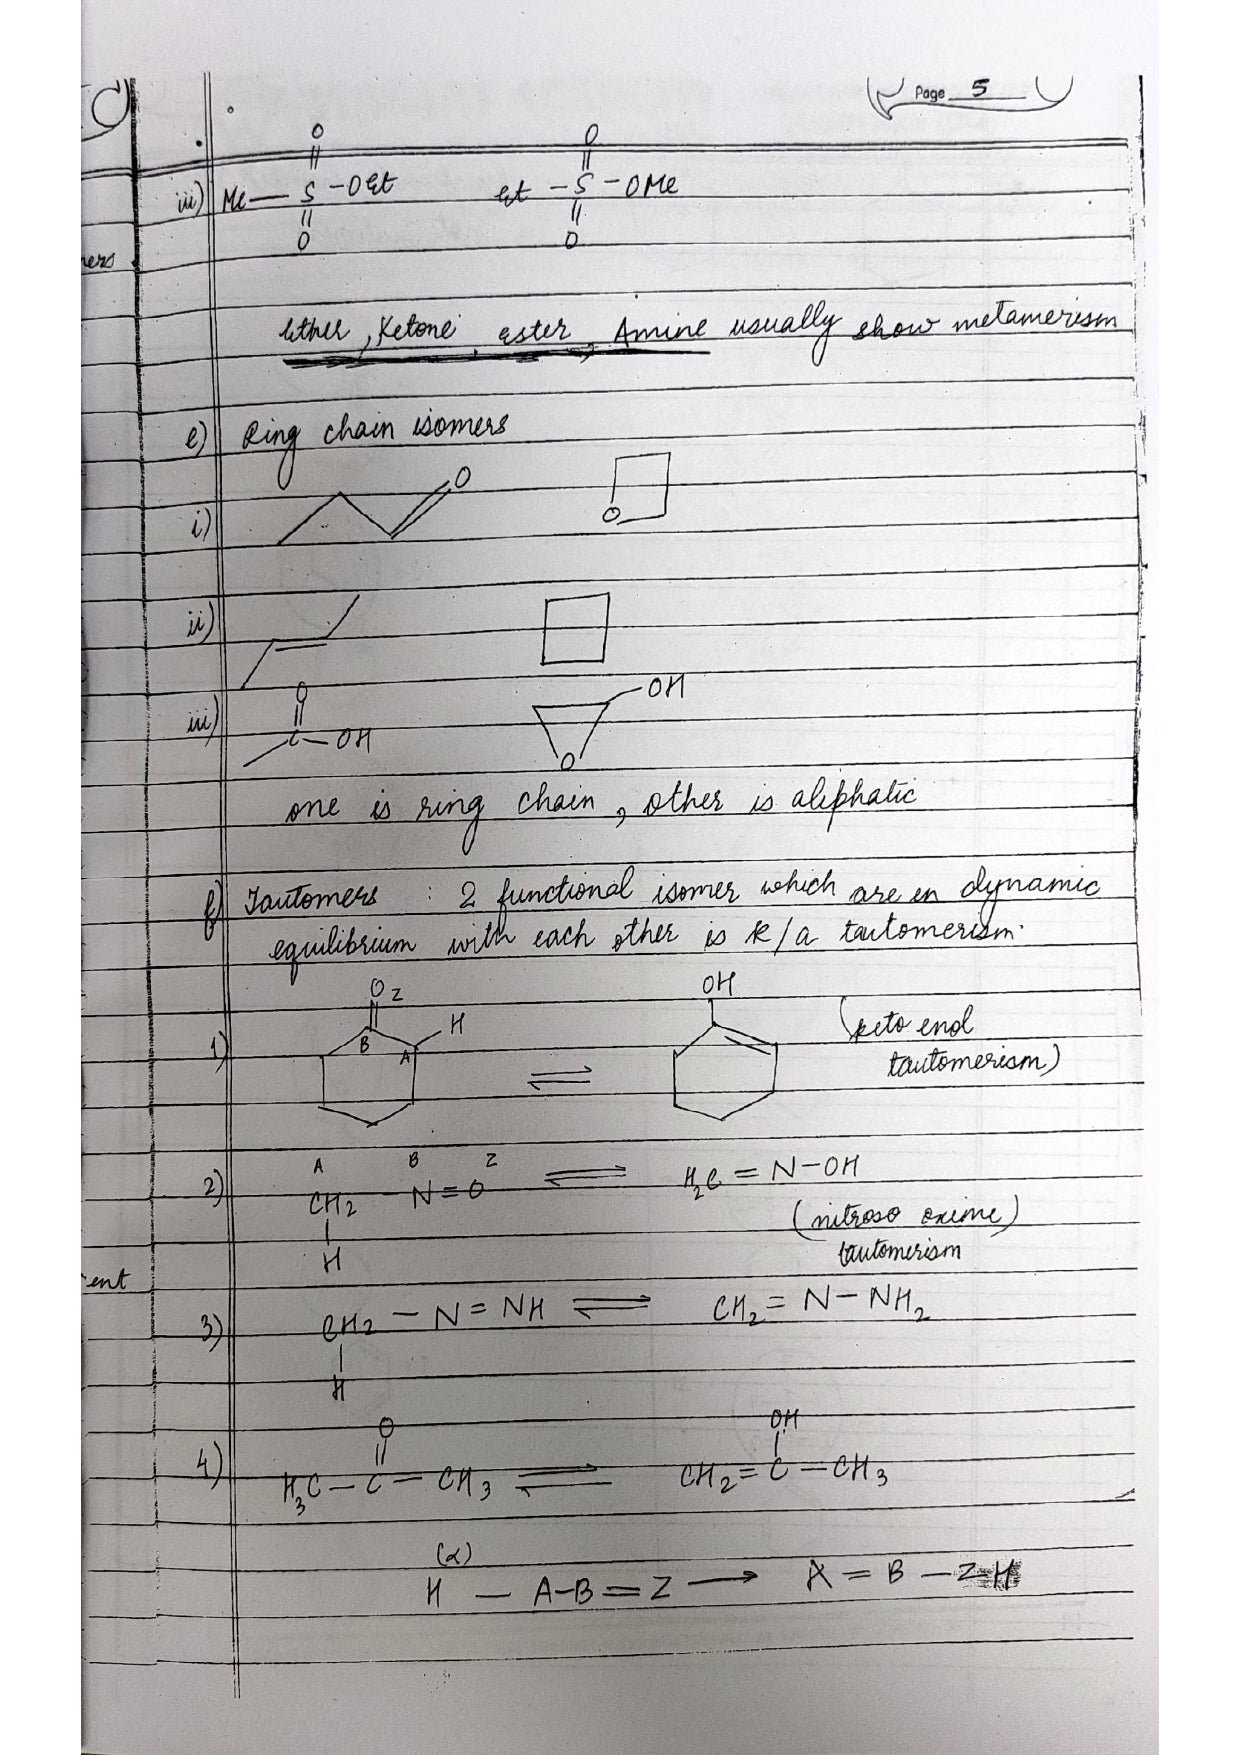 Page 5
O O
iii) Me — S - OEt Et - S - OMe
O O
ners
Ether, Ketone, ester, Amine usually show metamerism
e) Ring chain isomers
i) O O
ii)
iii) O OH
C - OH O
one is ring chain, other is aliphatic
f) Tautomers : 2 functional isomer which are in dynamic
equilibrium with each other is k/a tautomerism.
O Z OH
1) B A H ⇌ (keto enol
tautomerism)
A B Z
2) CH2 - N = O ⇌ H2C = N - OH
H
(nitroso oxime)
tautomerism
ent
3) CH2 - N = NH ⇌ CH2 = N - NH2
H
O OH
4) H3C - C - CH3 ⇌ CH2 = C - CH3
(α)
H — A - B = Z → A = B - ZH